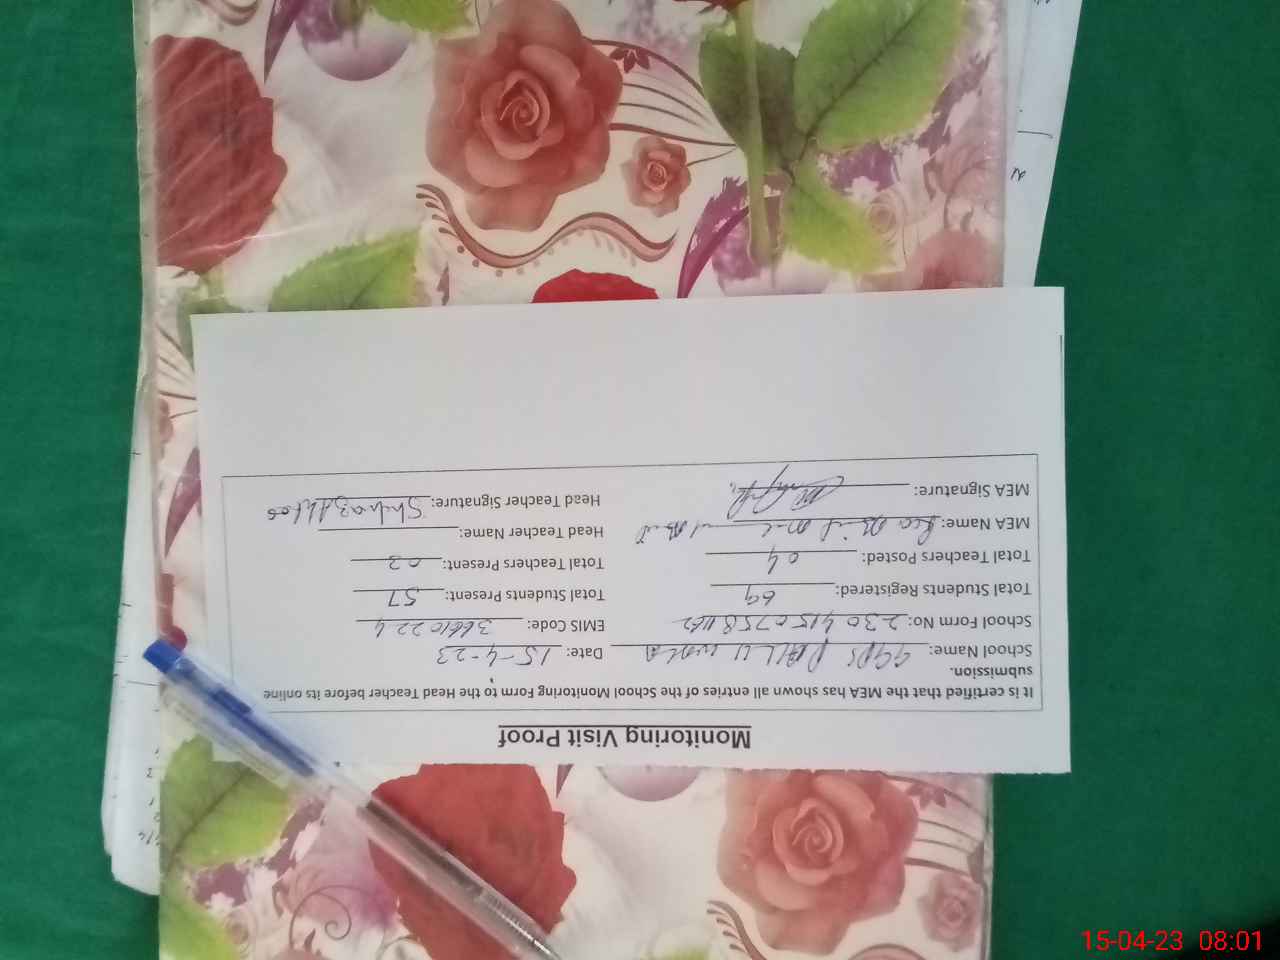 Monitoring Visit Proof
It is certified that the MEA has shown all entries of the School Monitoring Form to the Head Teacher before its online
submission.
School Name: GGPS PALLU WALA Date: 15-4-23
School Form No: EMIS Code:
Total Students Registered: 69 Total Students Present: 57
Total Teachers Posted: 04 Total Teachers Present: 03
MEA Name: Head Teacher Name:
MEA Signature: Head Teacher Signature:
15-04-23 08:01